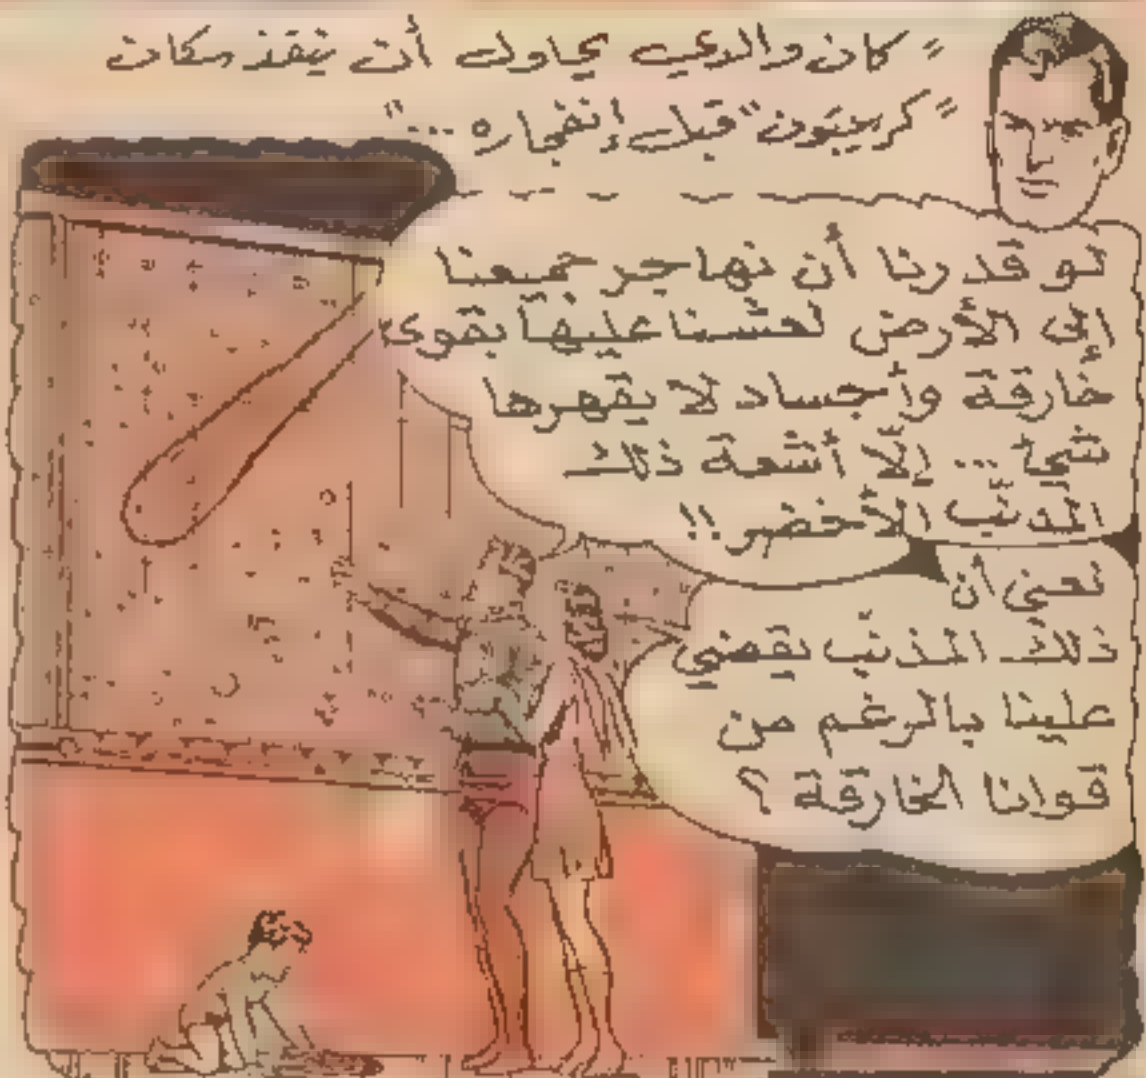 "كان والدي يحاول أن ينقذ سكان
"كريبتون" قبل إنفجاره ..."
لو قدرنا أن نهاجر جميعنا
إلى الأرض لعشنا عليها بقوى
خارقة وأجساد لا يقهرها
شيء ... إلّا أشعة ذلك
المذنّب الأخضر !!
تعني أن
ذلك المذنّب يقضي
علينا بالرغم من
قوانا الخارقة ؟